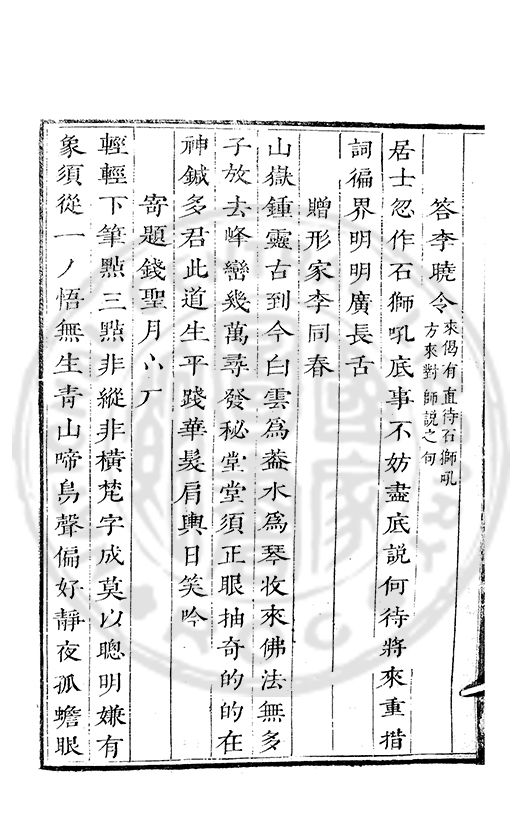 答李曉令來偈有直待石獅吼方來對師説之句
居士忽作石獅吼底事不妨盡底説何待將來重措
詞徧界明明廣長舌
贈形家李同春
山嶽鍾靈古到今白雲爲葢水爲琴收來佛法無多
子放去峰巒幾萬尋發秘堂堂須正眼抽奇的的在
神鍼多君此道生平踐華髮肩輿日笑吟
寄題錢聖月
輕輕下筆點三點非縱非橫梵字成莫以聰明嫌有
象須從一丿悟無生青山啼鳥聲偏好靜夜孤蟾眼